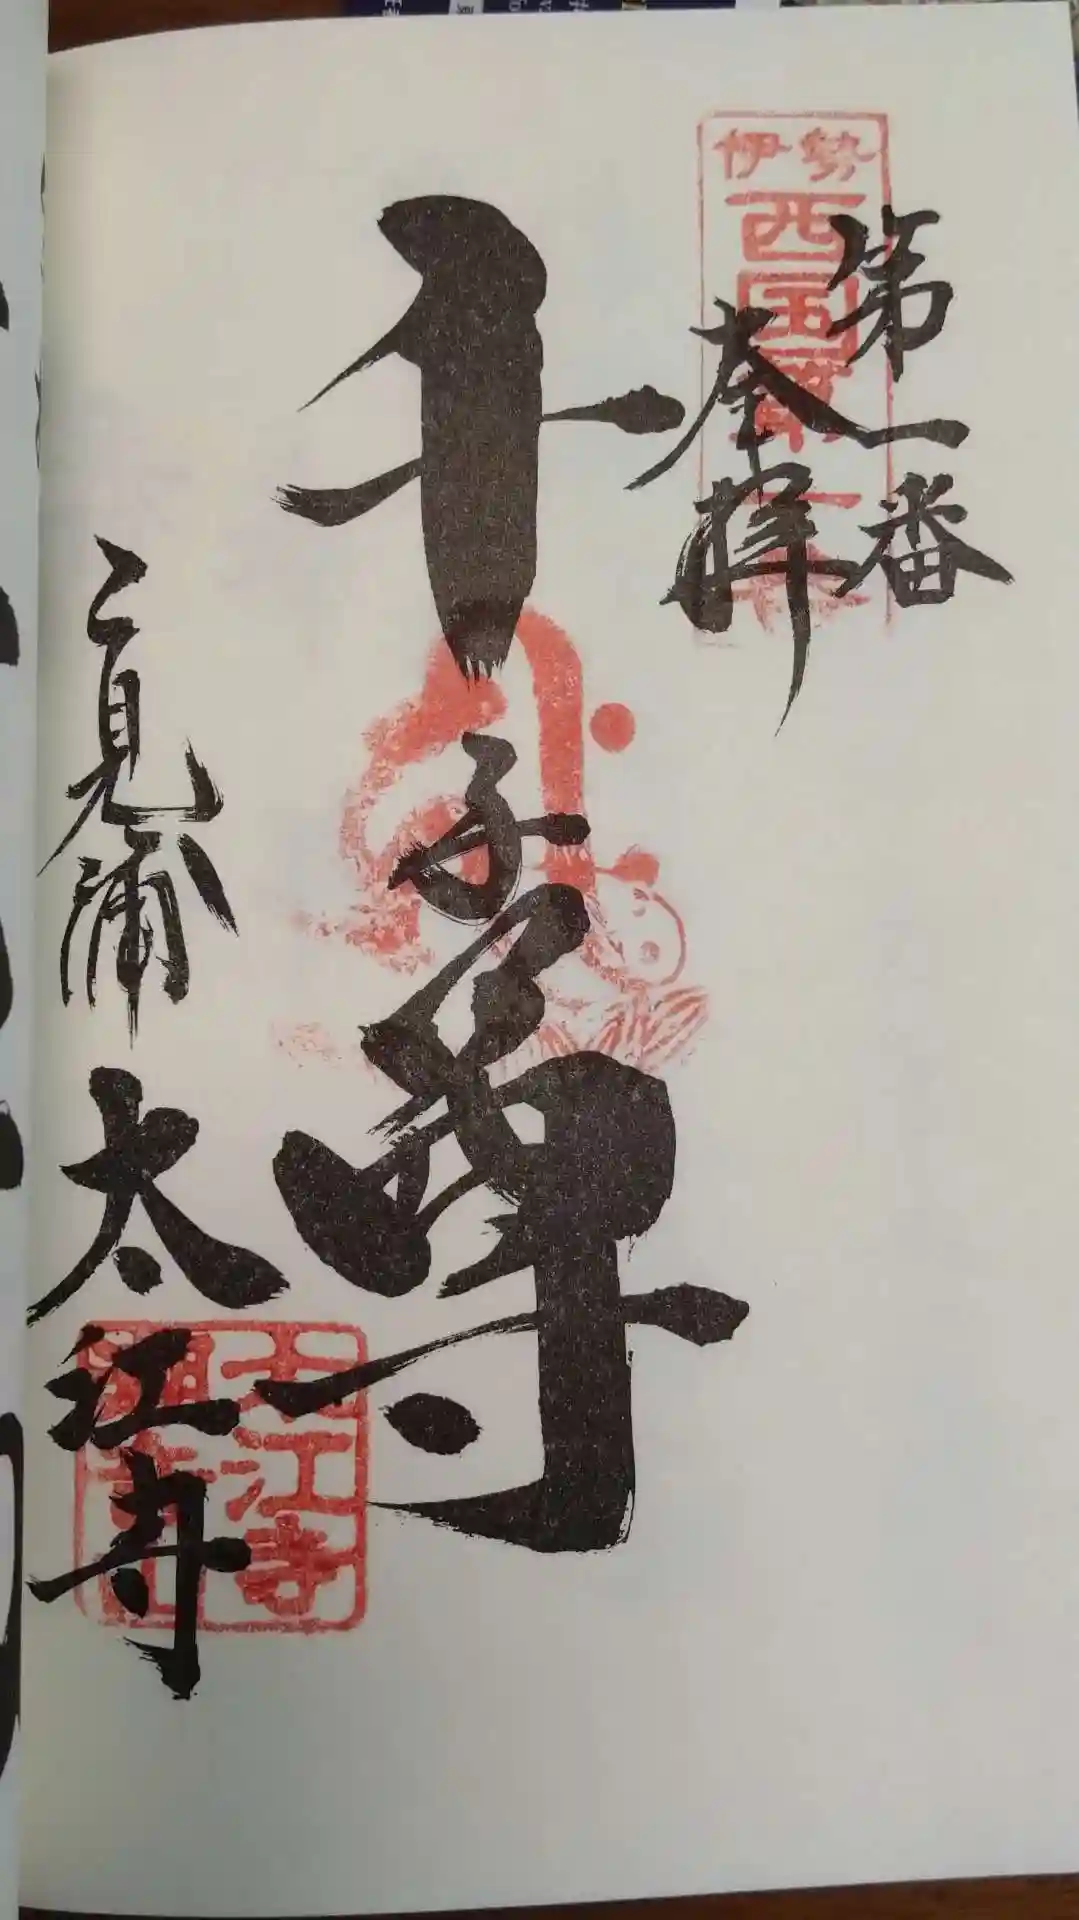 伊勢
西国第一番
第一番
奉拝
千手尊
二見浦
太江寺
太江寺